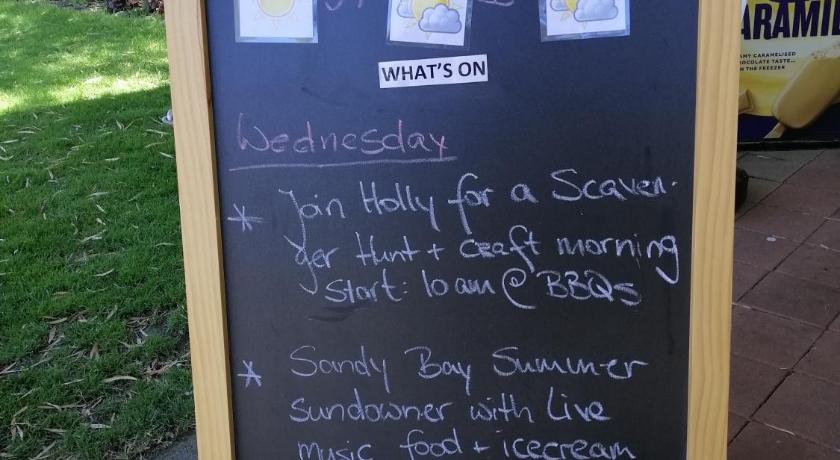 WHAT'S ON
Wednesday
* Join Holly for a Scaven-
ger Hunt + craft morning
Start: 10am @ BBQs
* Sandy Bay Summer
sundowner with live
music food + icecream
ARAMIL
MY CARAMELISED
OCOLATE TASTE...
N THE FREEZER